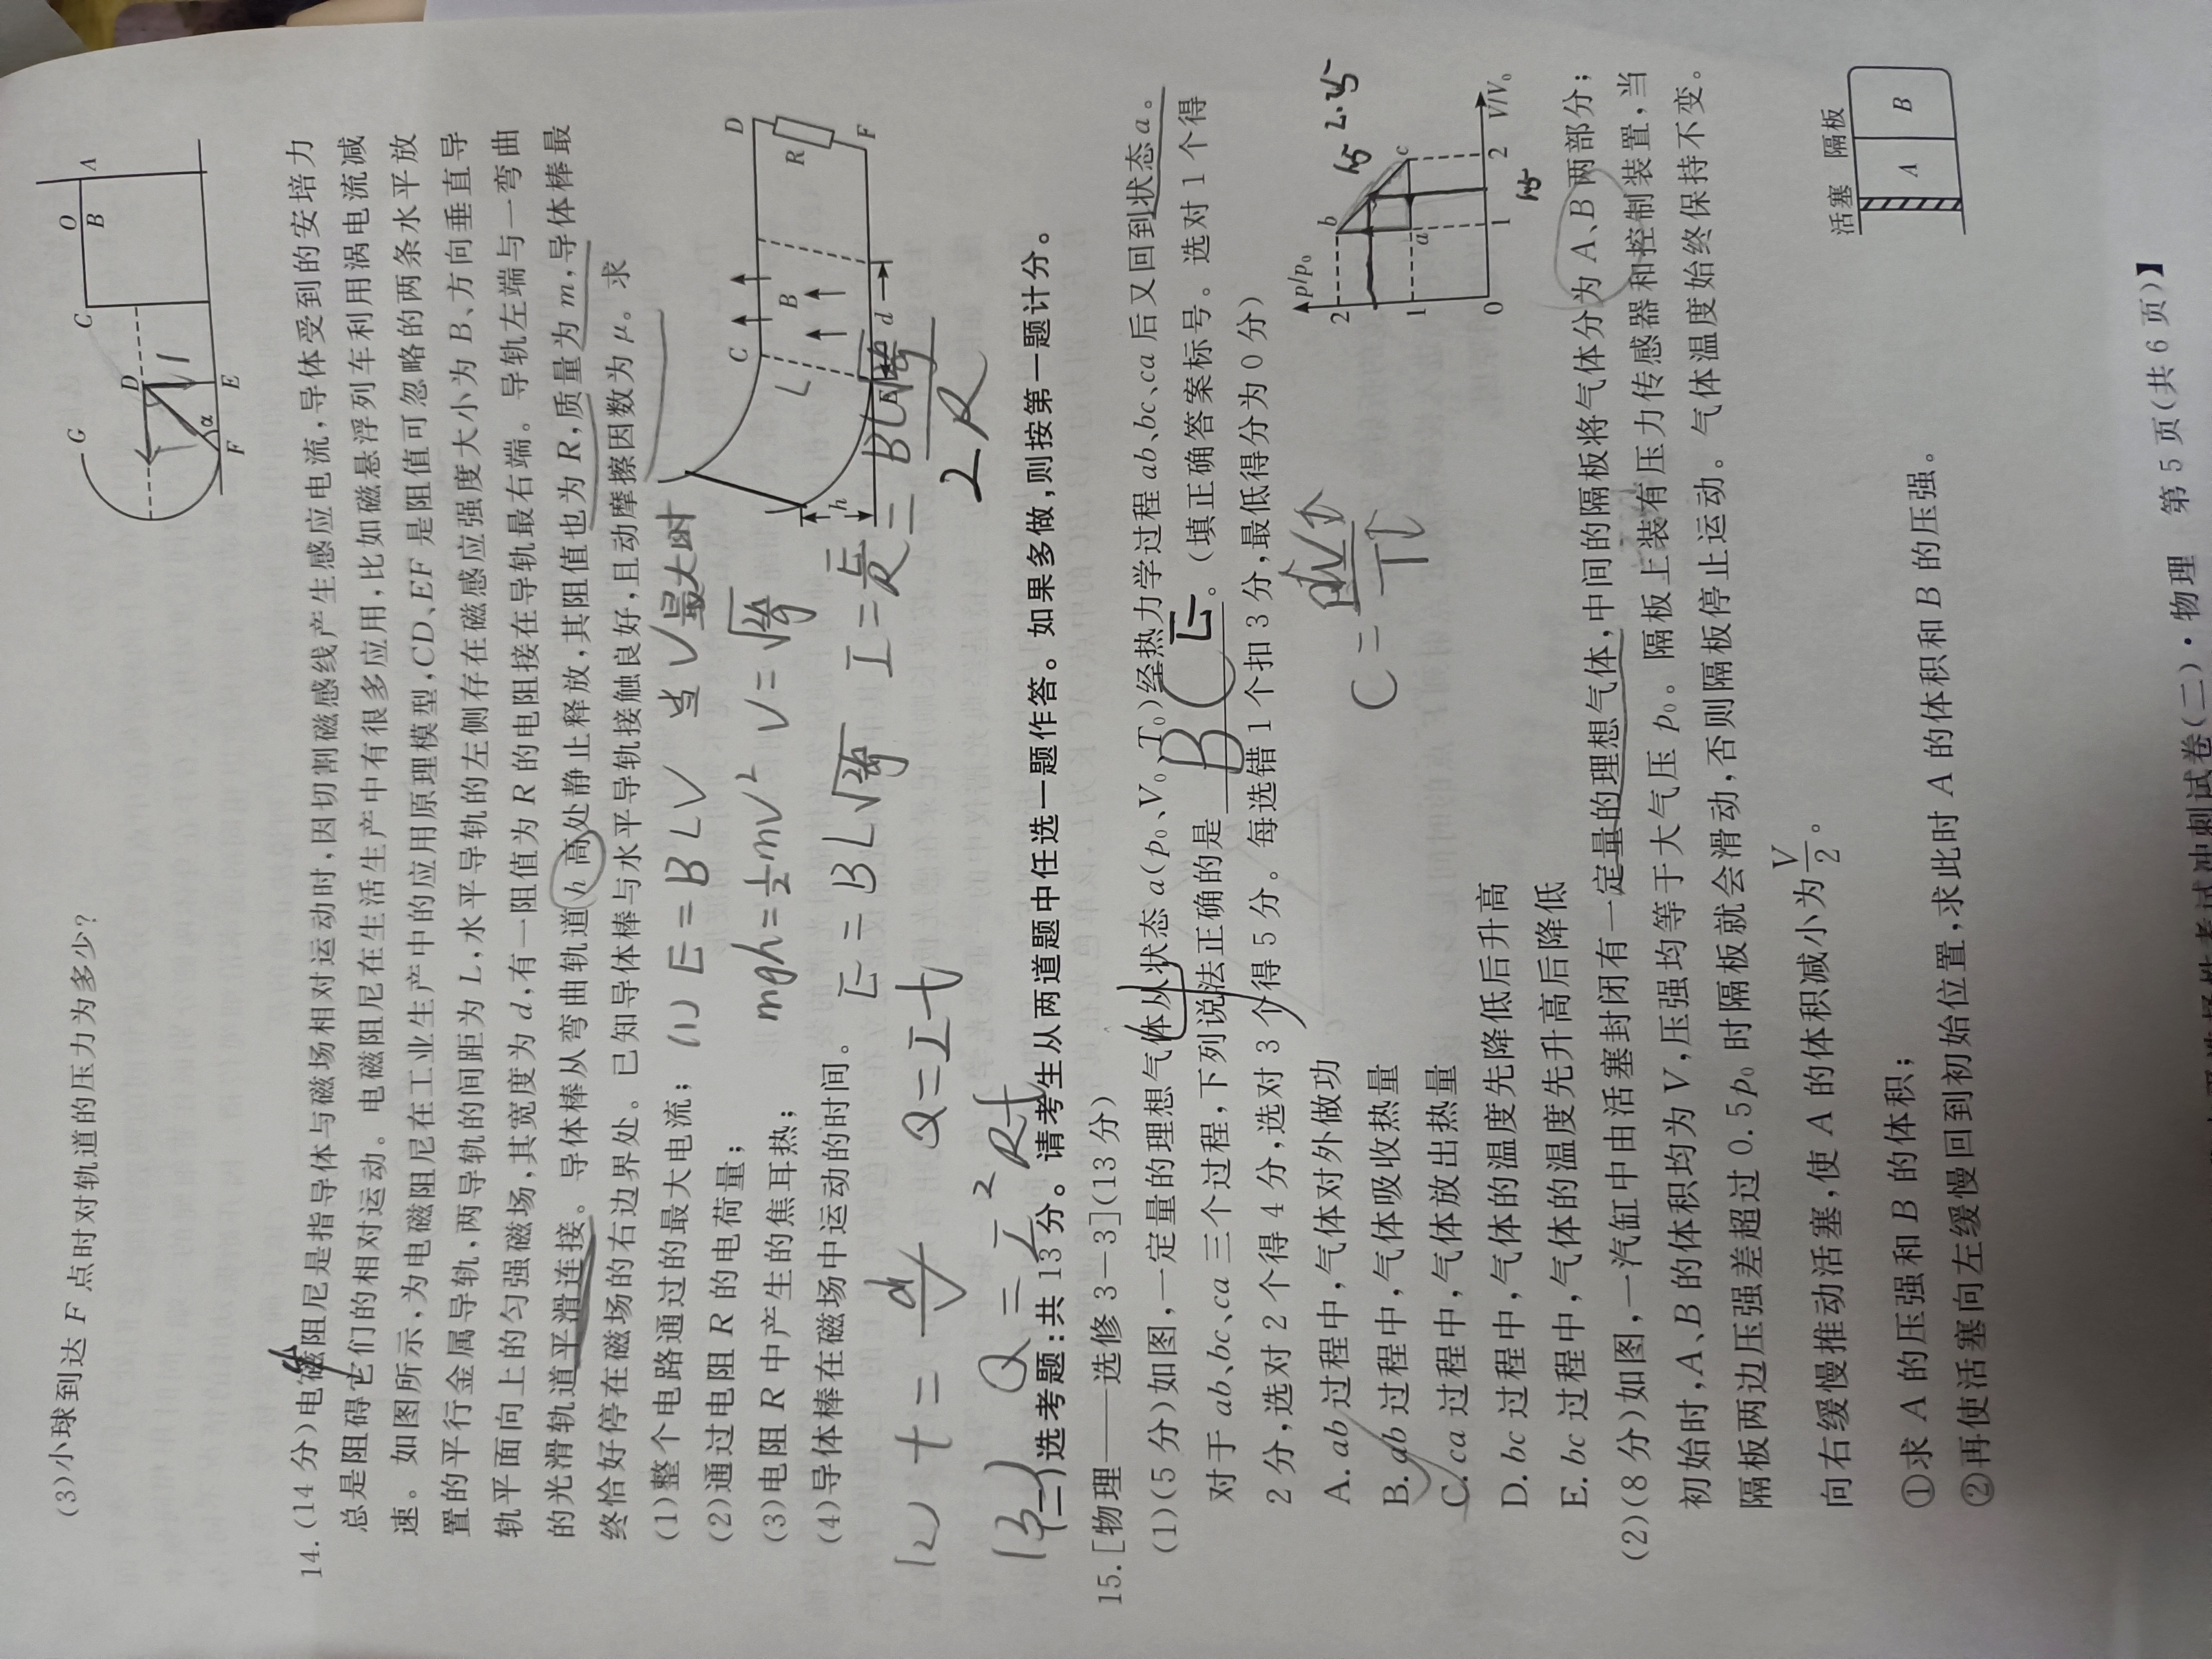 (3)小球到达 F 点时对轨道的压力为多少?
G
C
O
B
A
D
α
F
E
14.(14 分)电磁阻尼是指导体与磁场相对运动时,因切割磁感线产生感应电流,导体受到的安培力
总是阻碍它们的相对运动。电磁阻尼在生活生产中有很多应用,比如磁悬浮列车利用涡电流减
速。如图所示,为电磁阻尼在工业生产中的应用原理模型,CD、EF 是阻值可忽略的两条水平放
置的平行金属导轨,两导轨的间距为 L,水平导轨的左侧存在磁感应强度大小为 B、方向垂直导
轨平面向上的匀强磁场,其宽度为 d,有一阻值为 R 的电阻接在导轨最右端。导轨左端与一弯曲
的光滑轨道平滑连接。导体棒从弯曲轨道 h 高处静止释放,其阻值也为 R,质量为 m,导体棒最
终恰好停在磁场的右边界处。已知导体棒与水平导轨接触良好,且动摩擦因数为 μ。求
(1)整个电路通过的最大电流;
(2)通过电阻 R 的电荷量;
(3)电阻 R 中产生的焦耳热;
(4)导体棒在磁场中运动的时间。
C
D
L
B
R
h
d
F
(1) E=BLV 当V最大时
mgh=½mv² V=
E=BL
I=E/R=
2R
(2) t=d/V Q=It
(3) Q=I²Rt
(二)选考题:共 13 分。请考生从两道题中任选一题作答。如果多做,则按第一题计分。
15.[物理——选修 3-3](13 分)
(1)(5 分)如图,一定量的理想气体从状态 a(p₀、V₀、T₀)经热力学过程 ab、bc、ca 后又回到状态 a。
对于 ab、bc、ca 三个过程,下列说法正确的是 BCE 。(填正确答案标号。选对 1 个得
2 分,选对 2 个得 4 分,选对 3 个得 5 分。每选错 1 个扣 3 分,最低得分为 0 分)
A. ab 过程中,气体对外做功
B. ab 过程中,气体吸收热量
C. ca 过程中,气体放出热量
D. bc 过程中,气体的温度先降低后升高
E. bc 过程中,气体的温度先升高后降低
C=PV↑/T↑
p/p₀
2
b
1
a
c
0
1
2
V/V₀
1.5
2.25
1.5
(2)(8 分)如图,一汽缸中由活塞封闭有一定量的理想气体,中间的隔板将气体分为 A、B 两部分;
初始时,A、B 的体积均为 V,压强均等于大气压 p₀。隔板上装有压力传感器和控制装置,当
隔板两边压强差超过 0.5p₀ 时隔板就会滑动,否则隔板停止运动。气体温度始终保持不变。
向右缓慢推动活塞,使 A 的体积减小为 V/2。
①求 A 的压强和 B 的体积;
②再使活塞向左缓慢回到初始位置,求此时 A 的体积和 B 的压强。
活塞 隔板
A
B
·物理 第 5 页(共 6 页)】